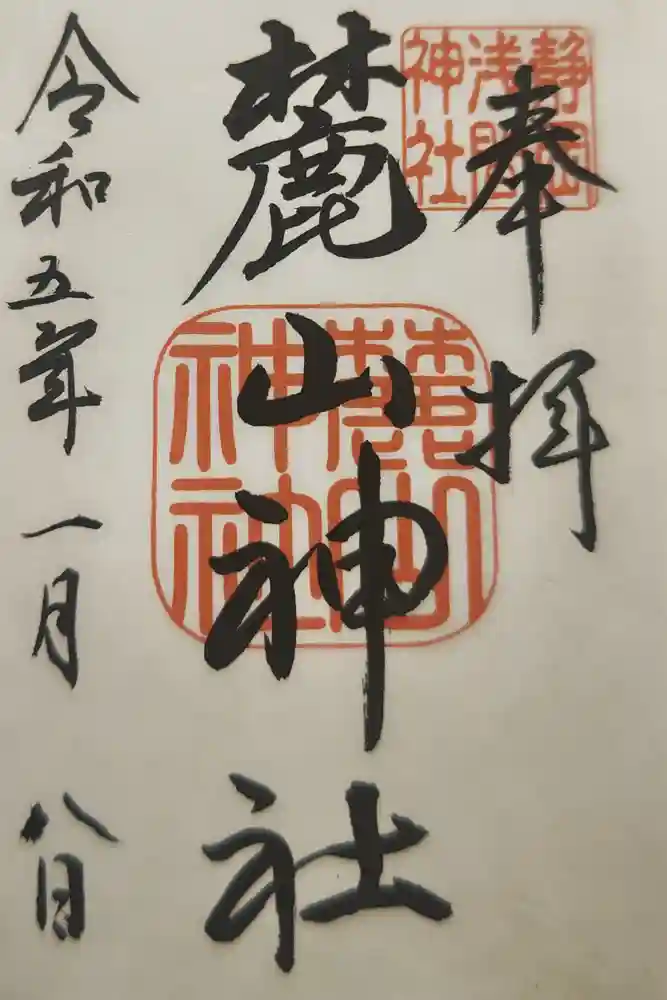 奉拝
静岡
浅間
神社
麓山神社
麓山
神社
令和五年一月八日